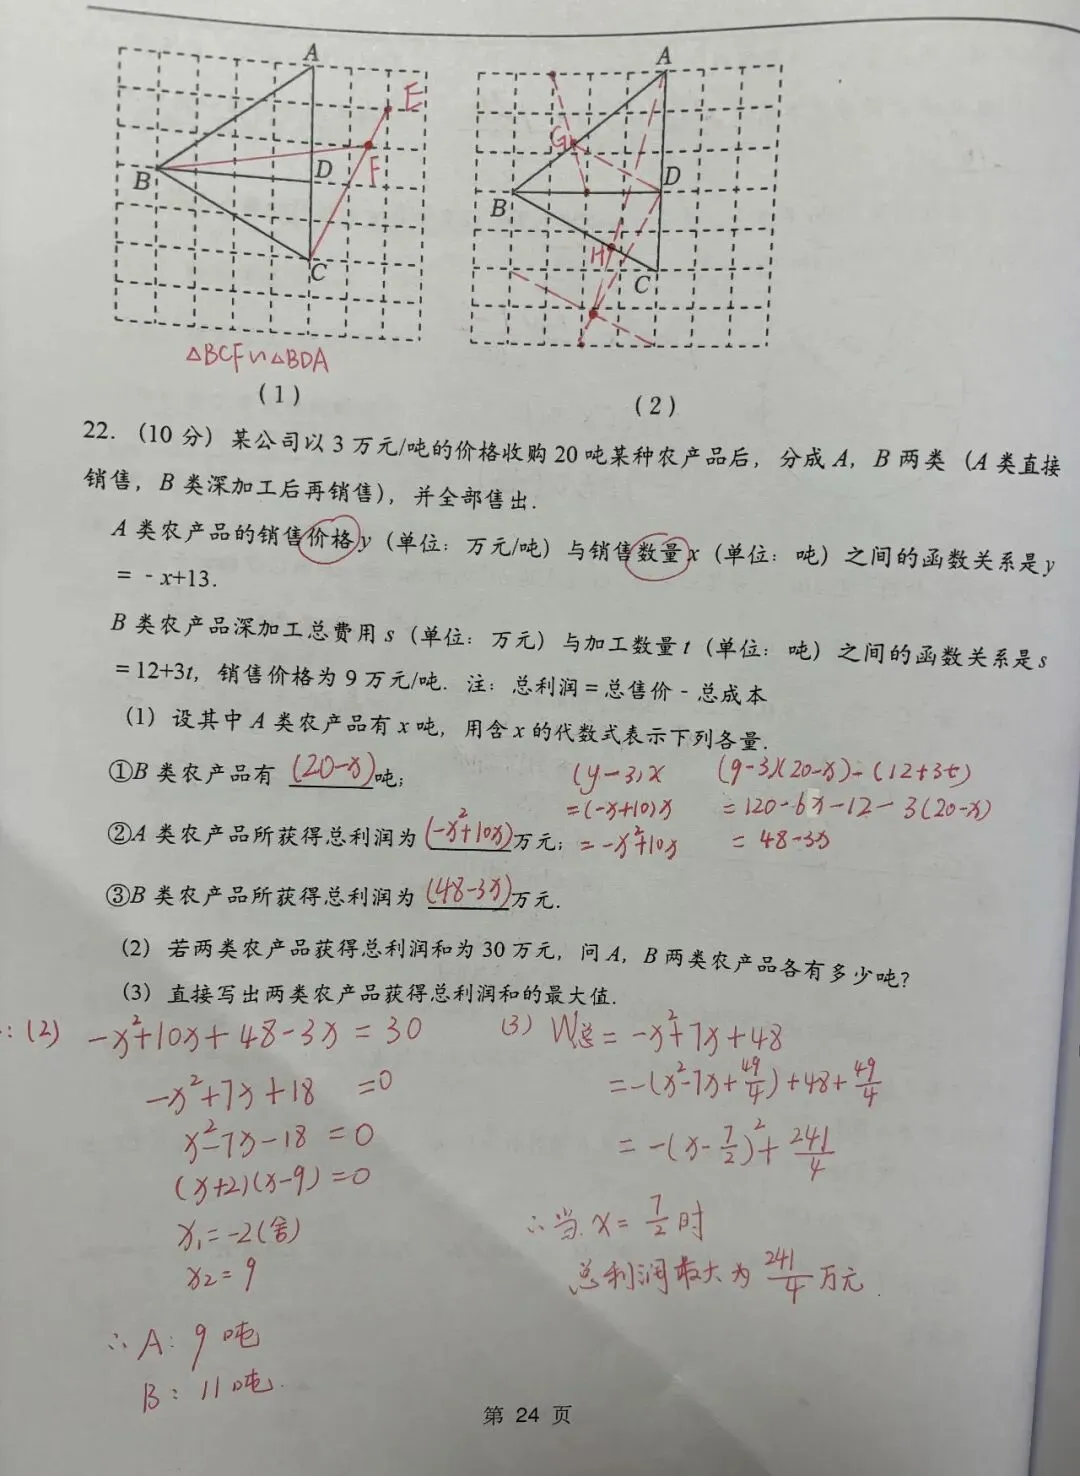 A
E
F
D
B
C
△BCF∽△BDA
(1)
A
G
D
B
H
C
(2)
22. (10 分) 某公司以 3 万元/吨的价格收购 20 吨某种农产品后，分成 A，B 两类 (A 类直接
销售，B 类深加工后再销售)，并全部售出.
A 类农产品的销售价格 y (单位：万元/吨) 与销售数量 x (单位：吨) 之间的函数关系是 y
= - x+13.
B 类农产品深加工总费用 s (单位：万元) 与加工数量 t (单位：吨) 之间的函数关系是 s
=12+3t，销售价格为 9 万元/吨. 注：总利润=总售价-总成本
(1) 设其中 A 类农产品有 x 吨，用含 x 的代数式表示下列各量.
①B 类农产品有 (20-x) 吨； (y-3)x (9-3)(20-x)-(12+3t)
=(-x+10)x =120-6x-12-3(20-x)
②A 类农产品所获得总利润为 (-x²+10x) 万元； =-x²+10x =48-3x
③B 类农产品所获得总利润为 (48-3x) 万元.
(2) 若两类农产品获得总利润和为 30 万元，问 A，B 两类农产品各有多少吨?
(3) 直接写出两类农产品获得总利润和的最大值.
:(2) -x²+10x+48-3x=30
-x²+7x+18=0
x²-7x-18=0
(x+2)(x-9)=0
x₁=-2(舍)
x₂=9
∴A: 9吨
B: 11吨.
(3) W总=-x²+7x+48
=-(x²-7x+49/4)+48+49/4
=-(x-7/2)²+241/4
∴当x=7/2时
总利润最大为241/4万元.
第 24 页